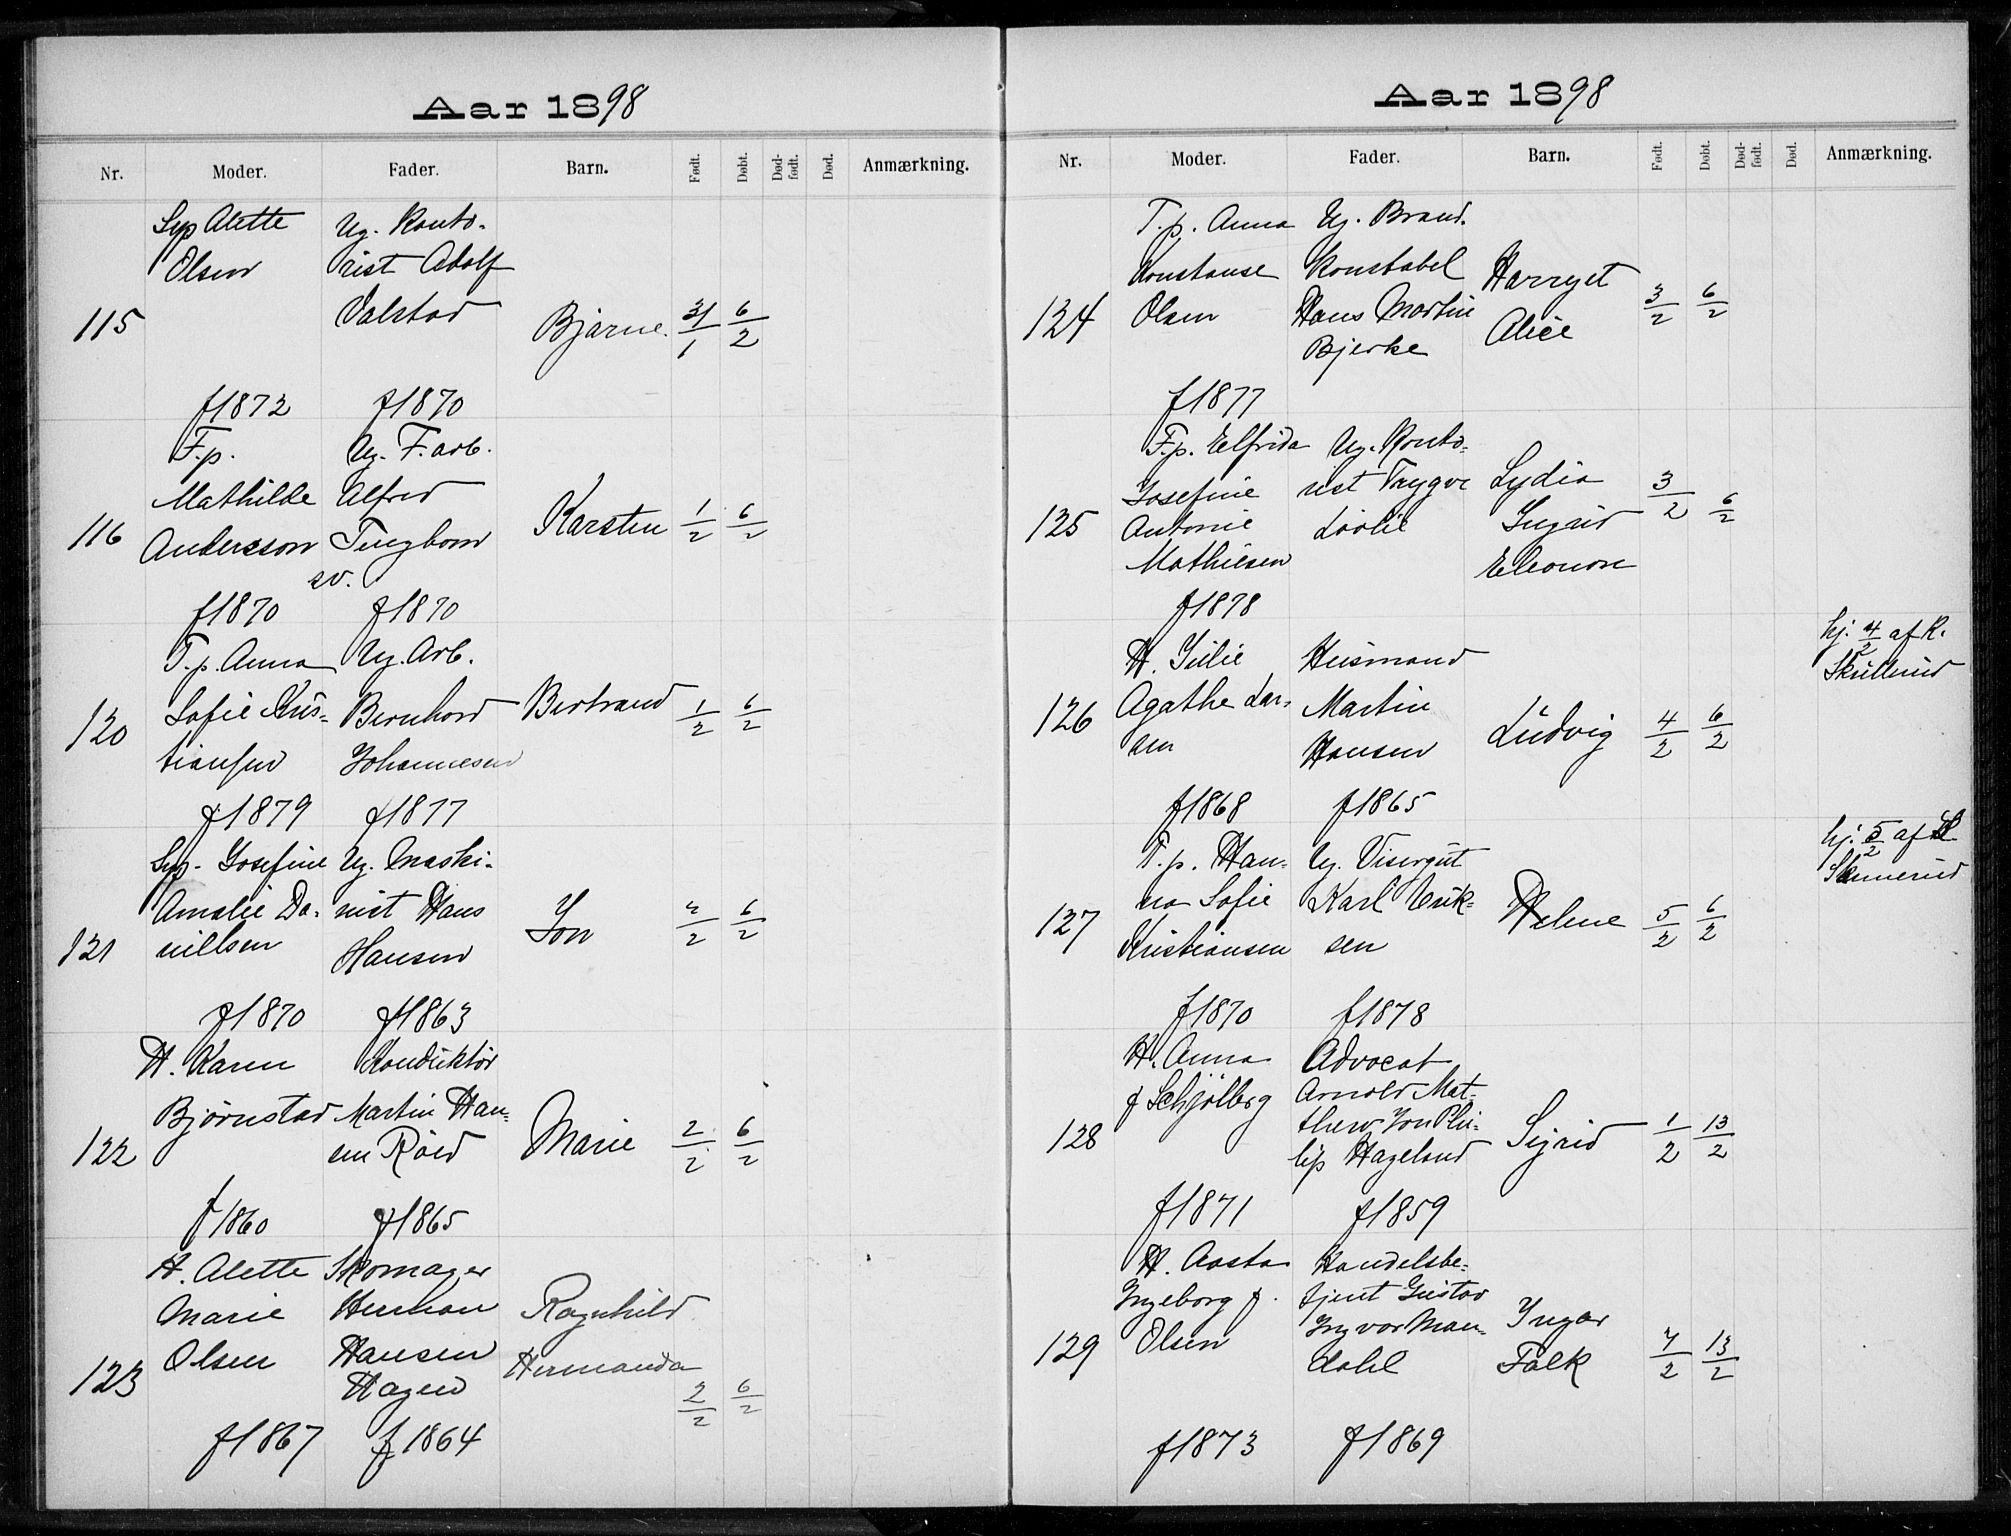 Aar 1898
Nr. Moder. Fader. Barn. Født. Døbt. Død-født. Død. Anmærkning.
115
Syp Alette
Olsen
f 1872
Ug. Konto-
rist Adolf
Valstad
f 1870
Bjarne. 31/1 6/2
116
F.p.
Mathilde
Andersson
sv.
f 1870
Ug. F. arb.
Alfred
Tingbom
f 1870
Karsten 1/2 6/2
120
T.p. Anna
Sofie Kris-
tiansen
f 1879
Ug. Arb.
Bernhard
Johannesen
f 1877
Bertrand 1/2 6/2
121
Syp. Josefine
Amalie Da-
nillsen
f 1870
Ug. Maski-
nist Hans
Hansen
f 1863
Jon 2/2 6/2
122
H. Karen
Bjørnstad
f 1860
Konduktør
Martin Han-
sen Røed
f 1865
Marie 2/2 6/2
123
H. Alette
Marie
Olsen
f 1867
Skomager
Herman
Hansen
Hagen
f 1864
Ragnhild
Hermanda 2/2 6/2
Aar 1898
Nr. Moder. Fader. Barn. Født. Døbt. Død-født. Død. Anmærkning.
124
T.p. Anna
Konstanse
Olsen
f 1877
Ug. Brand.
konstabel
Hans Martin
Bjerke
Harryet
Alice 3/2 6/2
125
F.p. Elfrida
Josefine
Antonie
Mathiesen
f 1878
Ug. Konto-
rist Trygve
Lydia
Ingrid
Eleonore 3/2 6/2
126
H. Julie
Agathe Lar-
sen
f 1868
Husmand
Martin
Hansen
f 1865
Ludvig 4/2 6/2
hj. 4/2 af K.
Skullerud
127
T.p. Han-
na Sofie
Kristiansen
f 1870
Ug. Visergut
Karl Erik-
sen
f 1878
Helene 5/2 6/2
hj. 5/2 af
128
H. Anna
f Schjølberg
f 1871
Advocat
Arnold Mat-
thew Jon Phi-
lip Hageland
f 1859
Sigrid 1/2 13/2
129
H. Aasta
Ingeborg f.
Olsen
f 1873
Handelsbe-
tjent Gustav
Ingvar Man-
dahl
f 1869
Ingar
Falk 7/2 13/2